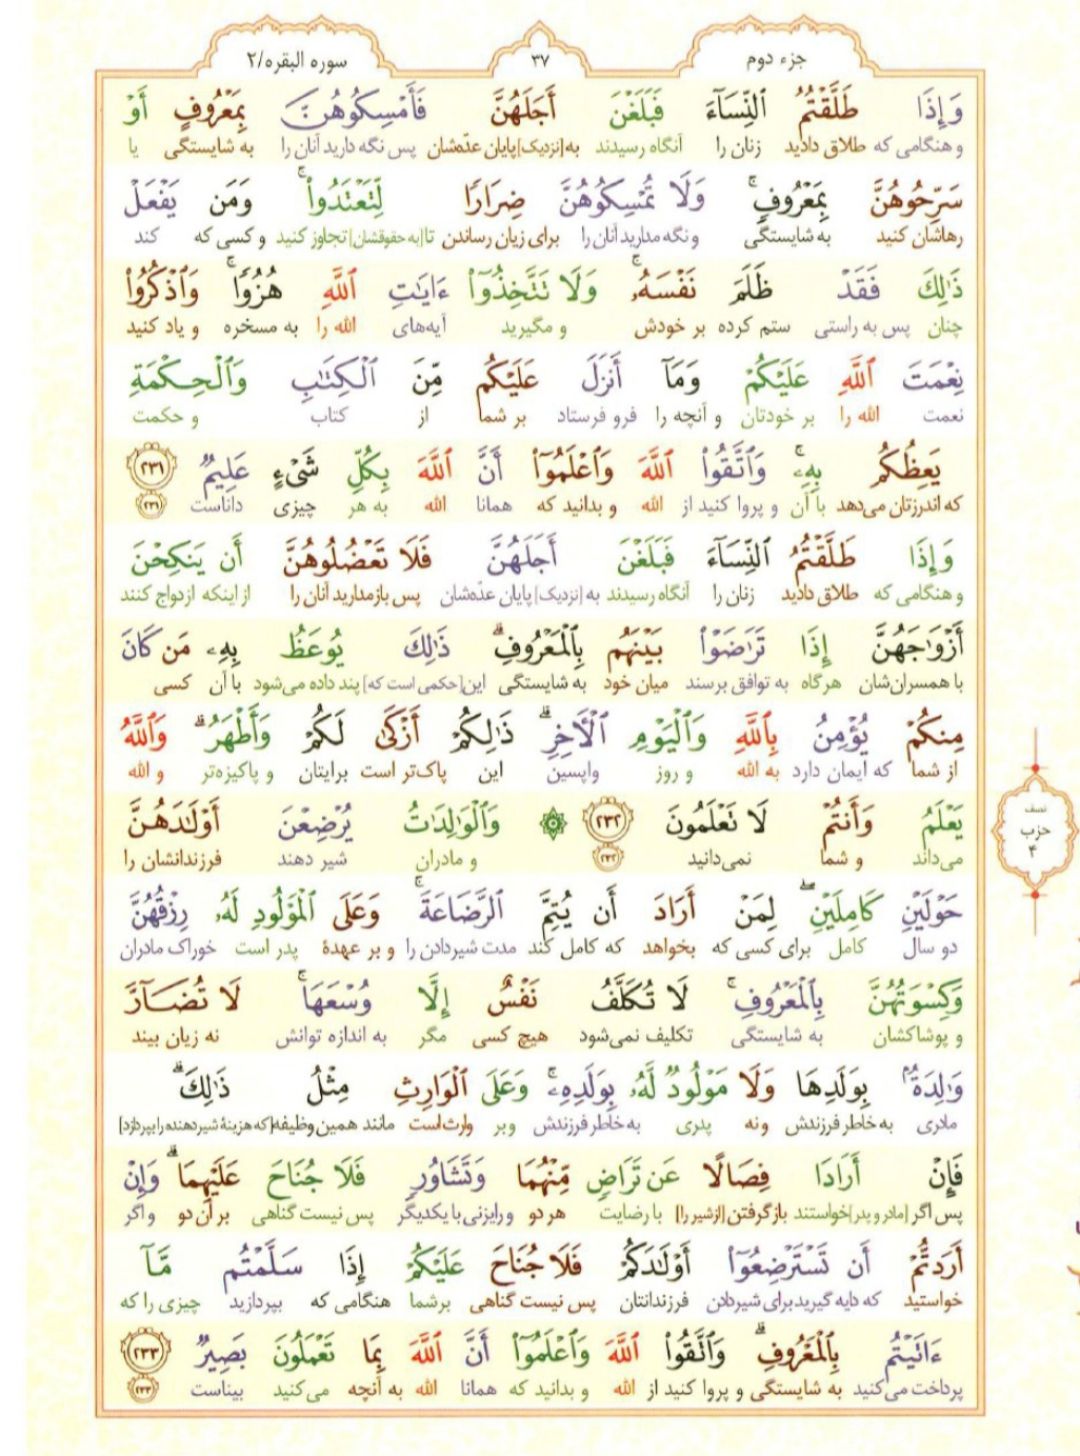 جزء دوم
٣٧
سوره البقره/٢
وَإِذَا طَلَّقْتُمُ ٱلنِّسَآءَ فَبَلَغْنَ أَجَلَهُنَّ فَأَمْسِكُوهُنَّ بِمَعْرُوفٍ أَوْ
و هنگامی که طلاق دادید زنان را آنگاه رسیدند به [نزدیک] پایان عدّه‌شان پس نگه دارید آنان را به شایستگی یا
سَرِّحُوهُنَّ بِمَعْرُوفٍۚ وَلَا تُمْسِكُوهُنَّ ضِرَارًا لِّتَعْتَدُوا۟ۚ وَمَن يَفْعَلْ
رهاشان کنید به شایستگی و نگه مدارید آنان را برای زیان رساندن تا [به حقوقشان] تجاوز کنید و کسی که کند
ذَٰلِكَ فَقَدْ ظَلَمَ نَفْسَهُۥۚ وَلَا تَتَّخِذُوٓا۟ ءَايَٰتِ ٱللَّهِ هُزُوًاۚ وَٱذْكُرُوا۟
چنان پس به راستی ستم کرده بر خودش و مگیرید آیه‌های الله را به مسخره و یاد کنید
نِعْمَتَ ٱللَّهِ عَلَيْكُمْ وَمَآ أَنزَلَ عَلَيْكُم مِّنَ ٱلْكِتَٰبِ وَٱلْحِكْمَةِ
نعمت الله را بر خودتان و آنچه را فرو فرستاد بر شما از کتاب و حکمت
يَعِظُكُم بِهِۦۚ وَٱتَّقُوا۟ ٱللَّهَ وَٱعْلَمُوٓا۟ أَنَّ ٱللَّهَ بِكُلِّ شَىْءٍ عَلِيمٌ ٢٣١
که اندرزتان می‌دهد با آن و پروا کنید از الله و بدانید که همانا الله به هر چیزی داناست ٢٣١
وَإِذَا طَلَّقْتُمُ ٱلنِّسَآءَ فَبَلَغْنَ أَجَلَهُنَّ فَلَا تَعْضُلُوهُنَّ أَن يَنكِحْنَ
و هنگامی که طلاق دادید زنان را آنگاه رسیدند به [نزدیک] پایان عدّه‌شان پس بازمدارید آنان را از اینکه ازدواج کنند
أَزْوَٰجَهُنَّ إِذَا تَرَٰضَوْا۟ بَيْنَهُم بِٱلْمَعْرُوفِۗ ذَٰلِكَ يُوعَظُ بِهِۦ مَن كَانَ
با همسران‌شان هرگاه به توافق برسند میان خود به شایستگی این [حکمی است که] پند داده می‌شود با آن کسی
مِنكُمْ يُؤْمِنُ بِٱللَّهِ وَٱلْيَوْمِ ٱلْـَٔاخِرِۗ ذَٰلِكُمْ أَزْكَىٰ لَكُمْ وَأَطْهَرُۗ وَٱللَّهُ
از شما که ایمان دارد به الله و روز واپسین این پاک‌تر است برایتان و پاکیزه‌تر و الله
يَعْلَمُ وَأَنتُمْ لَا تَعْلَمُونَ ٢٣٢ ۞ وَٱلْوَٰلِدَٰتُ يُرْضِعْنَ أَوْلَٰدَهُنَّ
می‌داند و شما نمی‌دانید ٢٣٢ و مادران شیر دهند فرزندانشان را
نصف
حزب
۴
حَوْلَيْنِ كَامِلَيْنِۖ لِمَنْ أَرَادَ أَن يُتِمَّ ٱلرَّضَاعَةَۚ وَعَلَى ٱلْمَوْلُودِ لَهُۥ رِزْقُهُنَّ
دو سال کامل برای کسی که بخواهد که کامل کند مدت شیردادن را و بر عهدهٔ پدر است خوراک مادران
وَكِسْوَتُهُنَّ بِٱلْمَعْرُوفِۚ لَا تُكَلَّفُ نَفْسٌ إِلَّا وُسْعَهَاۚ لَا تُضَآرَّ
و پوشاکشان به شایستگی تکلیف نمی‌شود هیچ کسی مگر به اندازه توانش نه زیان بیند
وَٰلِدَةٌۢ بِوَلَدِهَا وَلَا مَوْلُودٌ لَّهُۥ بِوَلَدِهِۦۚ وَعَلَى ٱلْوَارِثِ مِثْلُ ذَٰلِكَۗ
مادری به خاطر فرزندش و نه پدری به خاطر فرزندش و بر وارث است مانند همین وظیفه [که هزینهٔ شیردهنده را بپردازد]
فَإِنْ أَرَادَا فِصَالًا عَن تَرَاضٍ مِّنْهُمَا وَتَشَاوُرٍ فَلَا جُنَاحَ عَلَيْهِمَاۗ وَإِنْ
پس اگر [مادر و پدر] خواستند بازگرفتن [از شیر را] با رضایت هر دو و رایزنی با یکدیگر پس نیست گناهی بر آن دو و اگر
أَرَدتُّمْ أَن تَسْتَرْضِعُوٓا۟ أَوْلَٰدَكُمْ فَلَا جُنَاحَ عَلَيْكُمْ إِذَا سَلَّمْتُم مَّآ
خواستید که دایه گیرید برای شیردادن فرزندانتان پس نیست گناهی برشما هنگامی که بپردازید چیزی را که
ءَاتَيْتُم بِٱلْمَعْرُوفِۗ وَٱتَّقُوا۟ ٱللَّهَ وَٱعْلَمُوٓا۟ أَنَّ ٱللَّهَ بِمَا تَعْمَلُونَ بَصِيرٌ ٢٣٣
پرداخت می‌کنید به شایستگی و پروا کنید از الله و بدانید که همانا الله به آنچه می‌کنید بیناست ٢٣٣